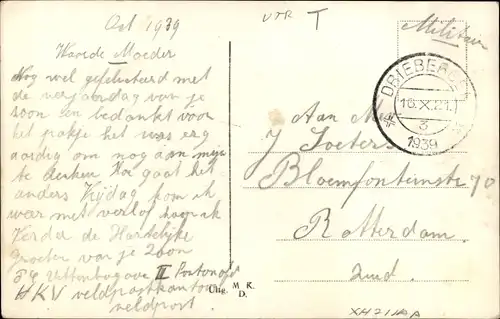 Oct 1939
UTR T
Militair
Waarde Moeder
Nog wel gefeliciteerd met
de verjaardag van je
zoon en bedankt voor
het pakje het was erg
aardig om nog aan mije
te denken Hoe gaat het
anders Vijdag kom ik
weer met verlof hoop ik
Verder de Hartelijke
groeten van je Zoon
II
HKV veldpostkantoor
veldpost
Uitg. M. K.
D.
DRIEBERGEN
16.X.21
3
1939
Aan Mej
J Soeters
Bloemfonteinstr 70
Rotterdam
Zuid.